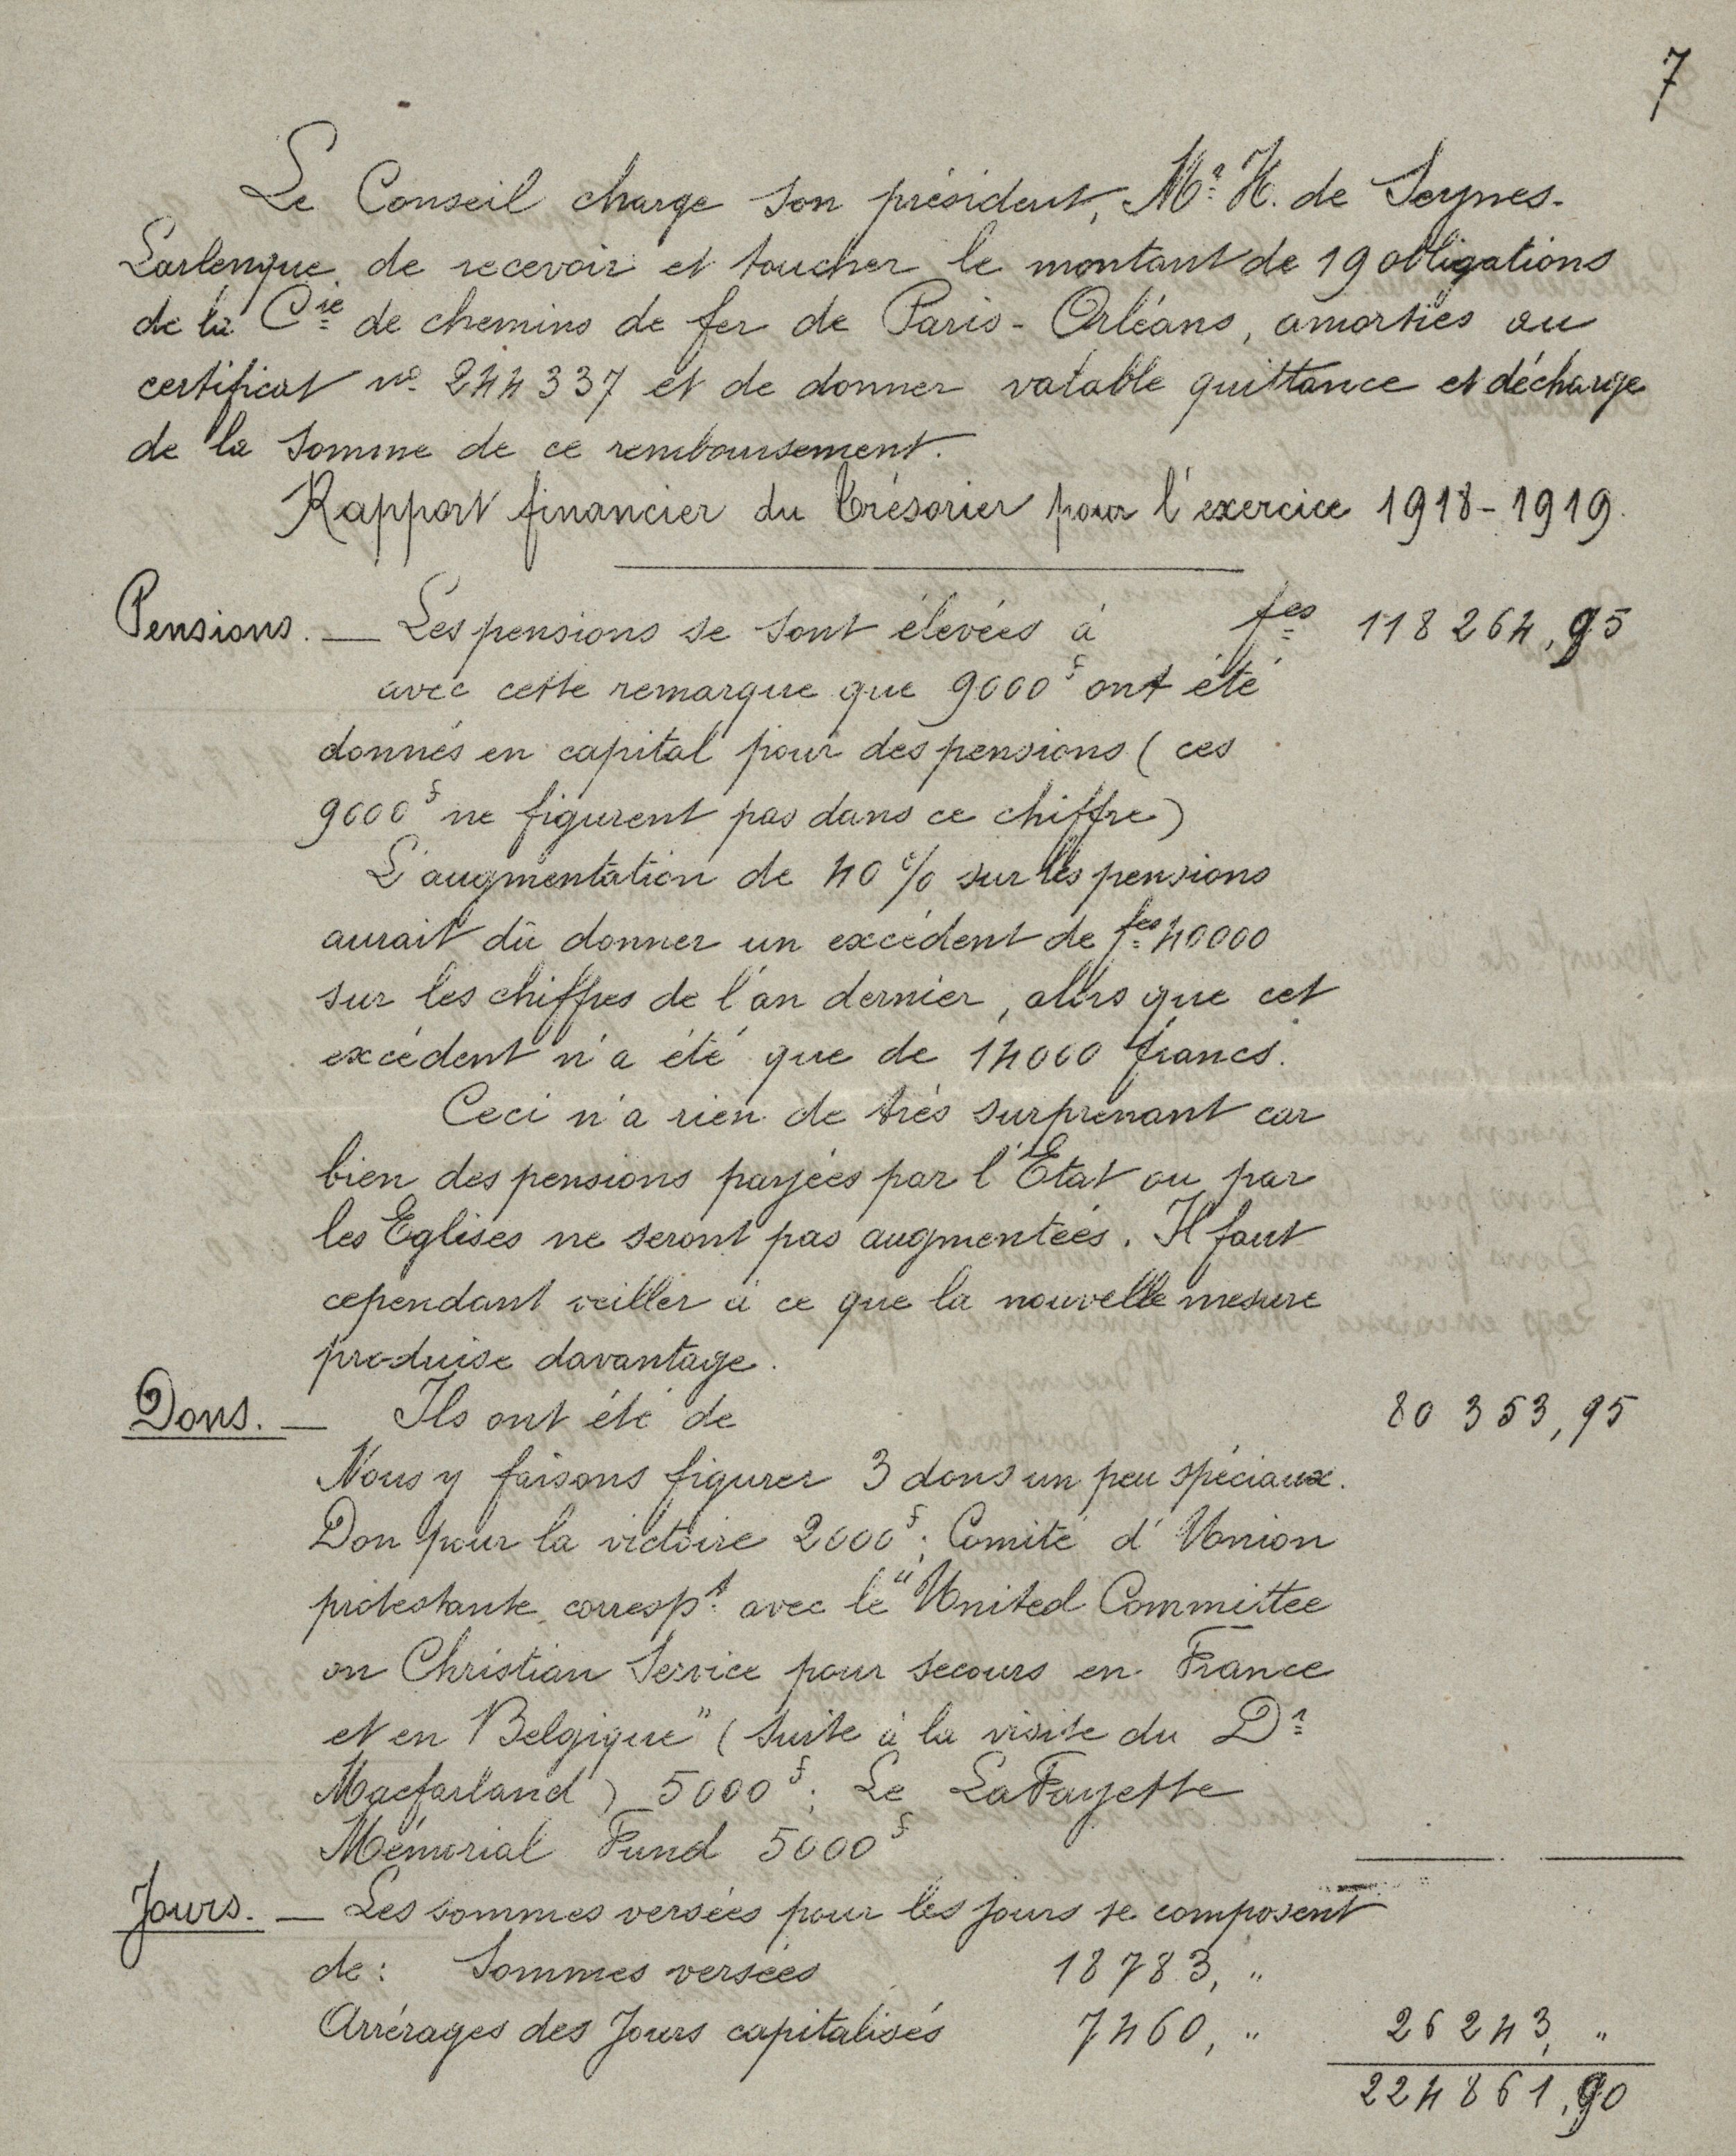 7
Le Conseil charge son président, Mr. H. de Seynes-
Larlenque de recevoir et toucher le montant de 19 obligations
de la Cie de chemins de fer de Paris-Orléans, amorties au
certificat no 244337 et de donner valable quittance et décharge
de la somme de ce remboursement.
Rapport financier du Trésorier pour l'exercice 1918-1919.
Pensions. — Les pensions se sont élevées à fcs 118 264,95
avec cette remarque que 9000f ont été
donnés en capital pour des pensions (ces
9000f ne figurent pas dans ce chiffre)
L'augmentation de 40 % sur les pensions
aurait dû donner un excédent de fcs 40000
sur les chiffres de l'an dernier, alors que cet
excédent n'a été que de 14000 francs.
Ceci n'a rien de très surprenant car
bien des pensions payées par l'Etat ou par
les Eglises ne seront pas augmentées. Il faut
cependant veiller à ce que la nouvelle mesure
produise davantage.
Dons. — Ils ont été de 80 353,95
Nous y faisons figurer 3 dons un peu spéciaux.
Don pour la victoire 2000f; Comité d'Union
protestante correspt. avec le "United Committee
on Christian Service pour secours en France
et en Belgique" (suite à la visite du Dr
Macfarland) 5000f; Le LaFayette
Mémorial Fund 5000f
Jours. — Les sommes versées pour les jours se composent
de: Sommes versées 18783, "
Arrérages des Jours capitalisés 7460, " 26243, "
224861,90